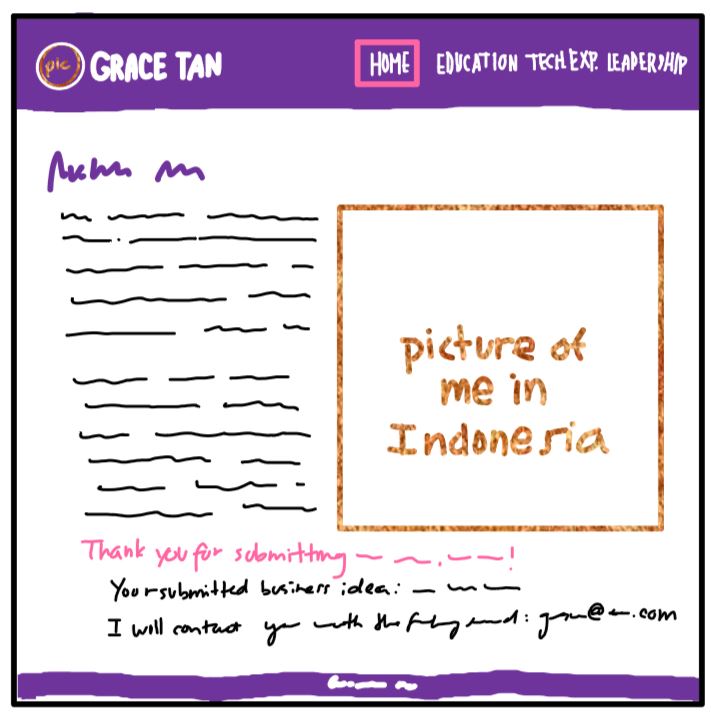 pic GRACE TAN HOME EDUCATION TECH EXP. LEADERSHIP
picture of
me in
Indonesia
Thank you for submitting !
Your submitted business idea:
I will contact you with the email: @ .com